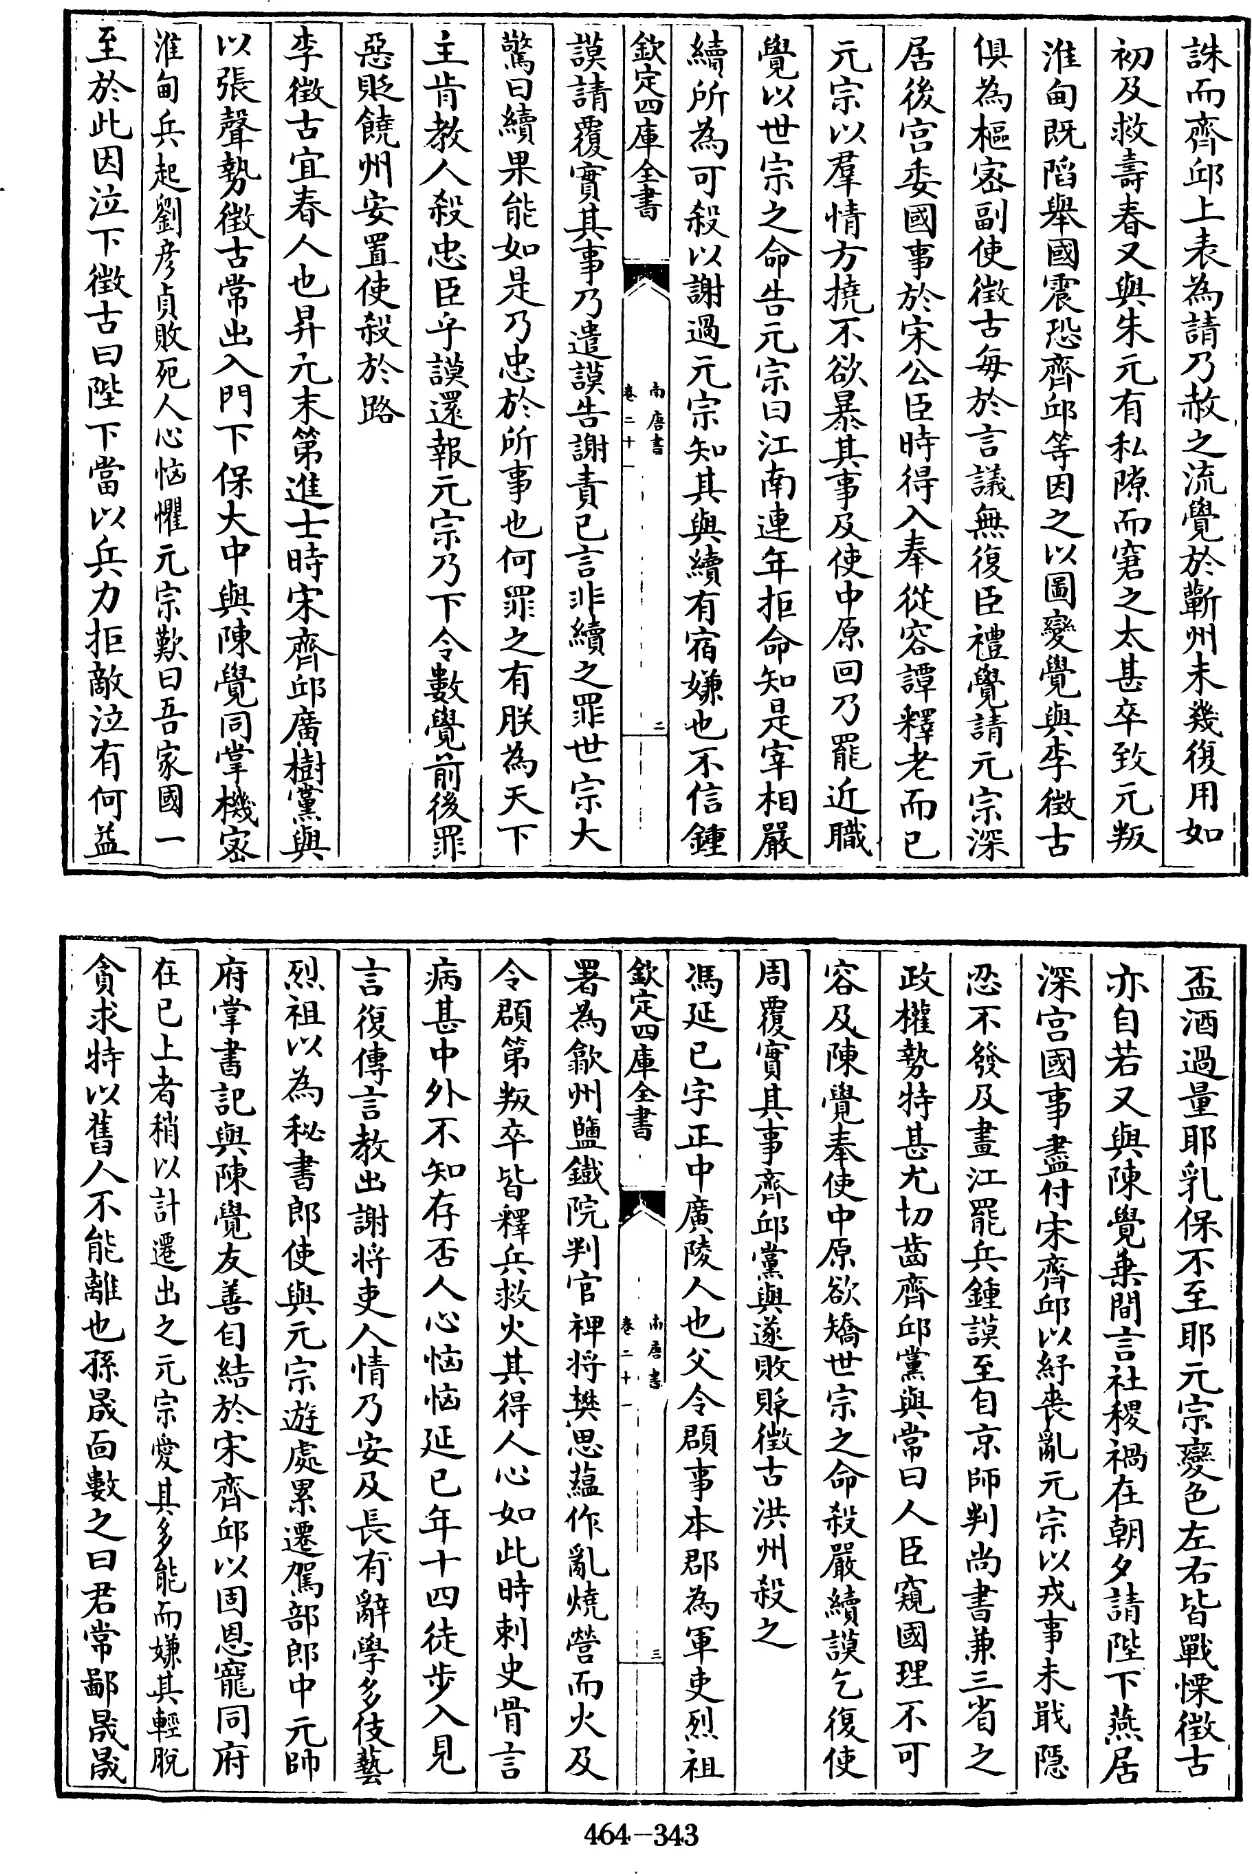 誅而齊邱上表為請乃赦之流覺於蘄州未幾復用如
初及救壽春又與朱元有私隙而窘之太甚卒致元叛
淮甸既陷舉國震恐齊邱等因之以圖變覺與李徵古
俱為樞密副使徵古每於言議無復臣禮覺請元宗深
居後宫委國事於宋公臣時得入奉從容譚釋老而已
元宗以羣情方撓不欲暴其事及使中原回乃罷近職
覺以世宗之命告元宗曰江南連年拒命知是宰相嚴
續所為可殺以謝過元宗知其與續有宿嫌也不信鍾
欽定四庫全書
南唐書
卷二十一
二
謨請覆實其事乃遣謨告謝責已言非續之罪世宗大
驚曰續果能如是乃忠於所事也何罪之有朕為天下
主肯教人殺忠臣乎謨還報元宗乃下令數覺前後罪
惡貶饒州安置使殺於路
李徵古宜春人也昇元末第進士時宋齊邱廣樹黨與
以張聲勢徵古常出入門下保大中與陳覺同掌機密
淮甸兵起劉彥貞敗死人心恟懼元宗歎曰吾家國一
至於此因泣下徵古曰陛下當以兵力拒敵泣有何益
盃酒過量耶乳保不至耶元宗變色左右皆戰慄徵古
亦自若又與陳覺乗間言社稷禍在朝夕請陛下燕居
深宫國事盡付宋齊邱以紓喪亂元宗以戎事未戢隱
忍不發及畫江罷兵鍾謨至自京師判尚書兼三省之
政權勢特甚尤切齒齊邱黨與常曰人臣窺國理不可
容及陳覺奉使中原欲矯世宗之命殺嚴續謨乞復使
周覆實其事齊邱黨與遂敗貶徵古洪州殺之
馮延已字正中廣陵人也父令頵事本郡為軍吏烈祖
欽定四庫全書
南唐書
卷二十一
三
署為歙州鹽鐵院判官裨將樊思蘊作亂燒營而火及
令頵第叛卒皆釋兵救火其得人心如此時刺史骨言
病甚中外不知存否人心恟恟延已年十四徒步入見
言復傳言教出謝将吏人情乃安及長有辭學多伎藝
烈祖以為秘書郎使與元宗遊處累遷駕部郎中元帥
府掌書記與陳覺友善自結於宋齊邱以固恩寵同府
在已上者稍以計遷出之元宗愛其多能而嫌其輕脫
貪求特以舊人不能離也孫晟面數之曰君常鄙晟晟
464-343